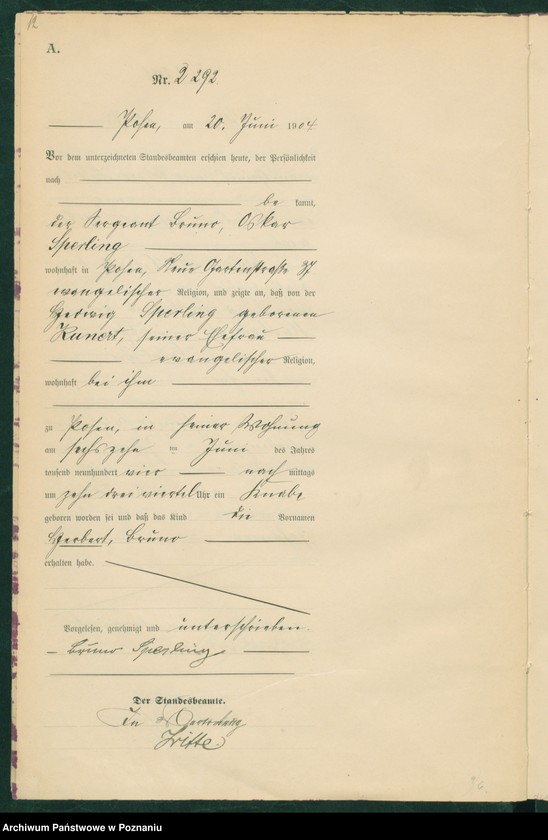 12
A.
Nr. 2292
Posen, am 20. Juni 1904
Vor dem unterzeichneten Standesbeamten erschien heute, der Persönlichkeit
nach
be kannt,
der Sergeant Bruno, Oskar
Sperling
wohnhaft in Posen, Neue Gartenstraße 37
evangelischer Religion, und zeigte an, daß von der
Hedwig Sperling geborenen
Kunert, seiner Ehefrau
evangelischer Religion,
wohnhaft bei ihm
zu Posen, in seiner Wohnung
am sechszehn ten Juni des Jahres
tausend neunhundert vier nach mittags
um zehn dreiviertel Uhr ein Knabe
geboren worden sei und daß das Kind die Vornamen
Herbert, Bruno
erhalten habe.
Vorgelesen, genehmigt und unterschrieben.
Bruno Sperling
Der Standesbeamte.
In Vertretung
Archiwum Państwowe w Poznaniu